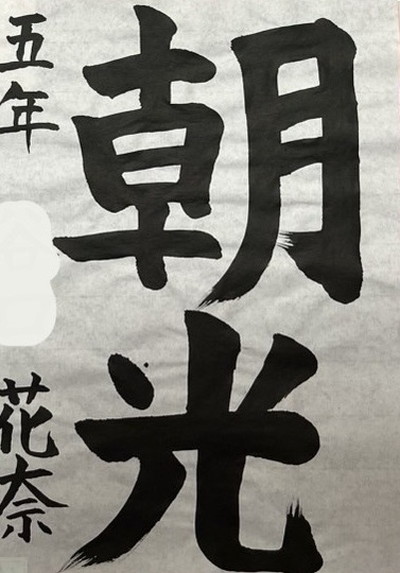 朝光
五年
花奈